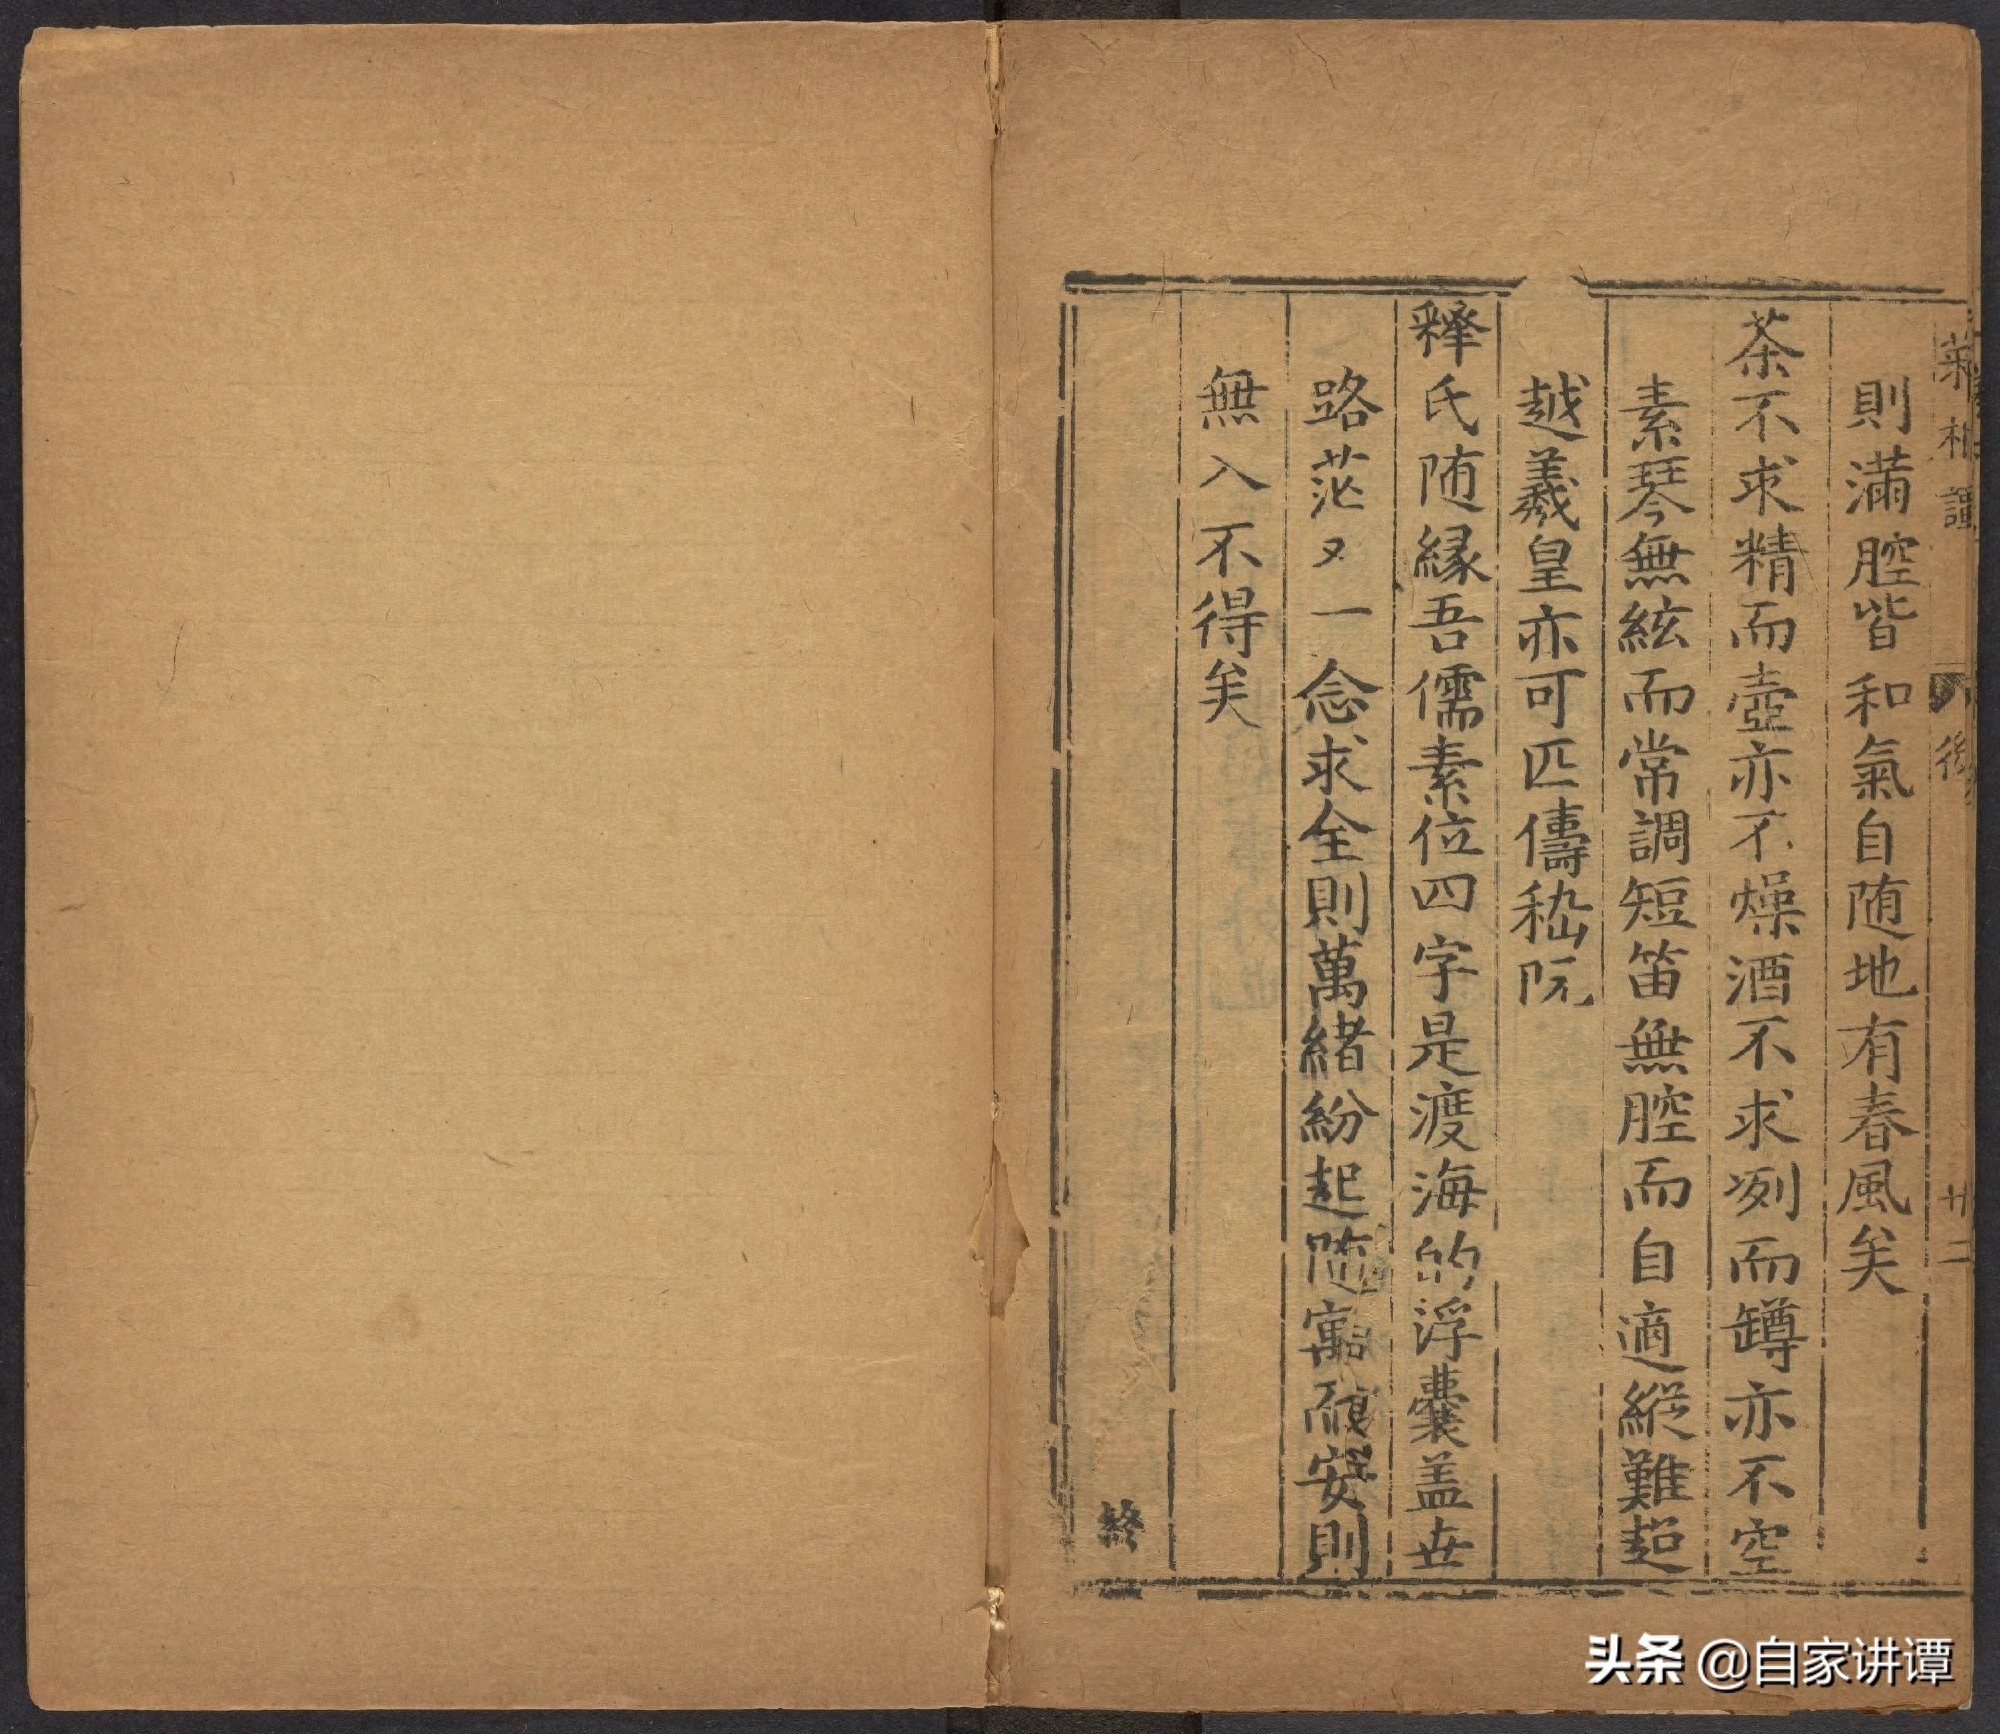 菜根譚 後 廿二
則滿腔皆和氣自随地有春風矣
茶不求精而壺亦不燥酒不求冽而罇亦不空
素琴無絃而常調短笛無腔而自適縱難超
越羲皇亦可匹儔嵇阮
釋氏随縁吾儒素位四字是渡海的浮囊盖世
路茫〻一念求全則萬緒紛起随寓而安則
無入不得矣
終
头条 @自家讲谭